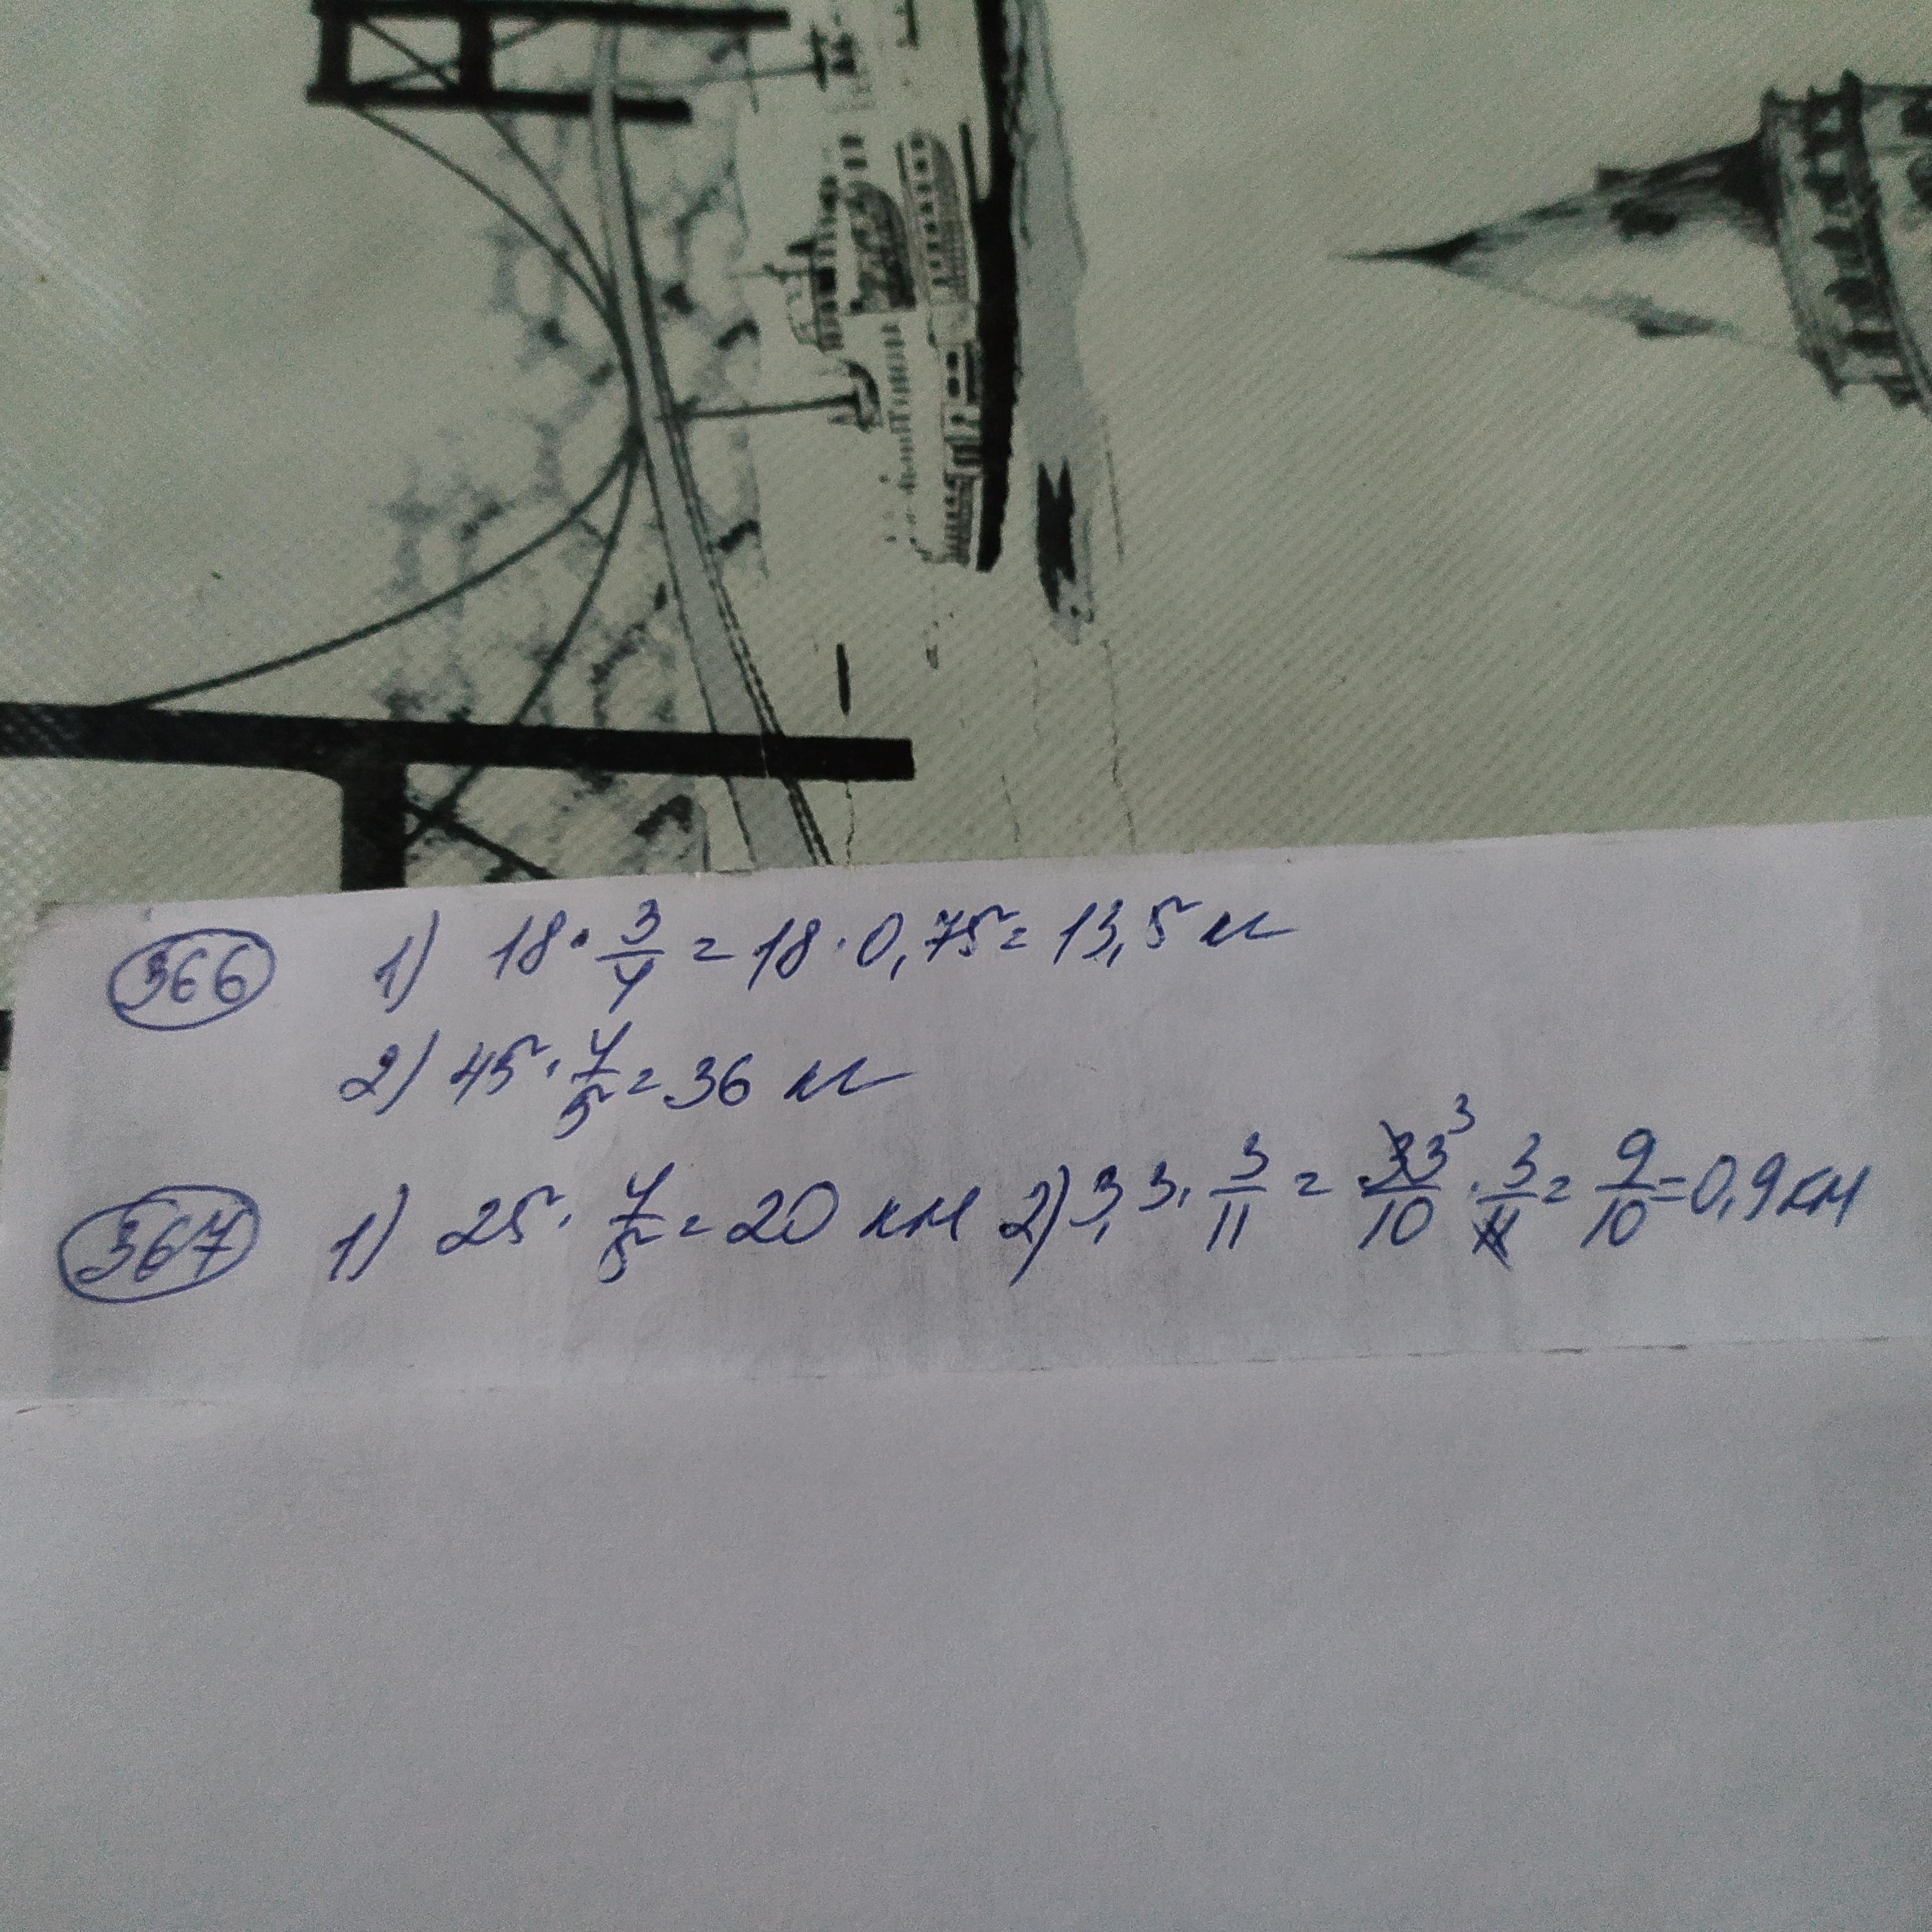 366 1) 18 · 3/4 = 18 · 0,75 = 13,5 кг
2) 45 · 4/5 = 36 кг
367 1) 25 · 4/5 = 20 км 2) 3,3 · 3/11 = 33/10 ³ · 3/11 = 9/10 = 0,9 км